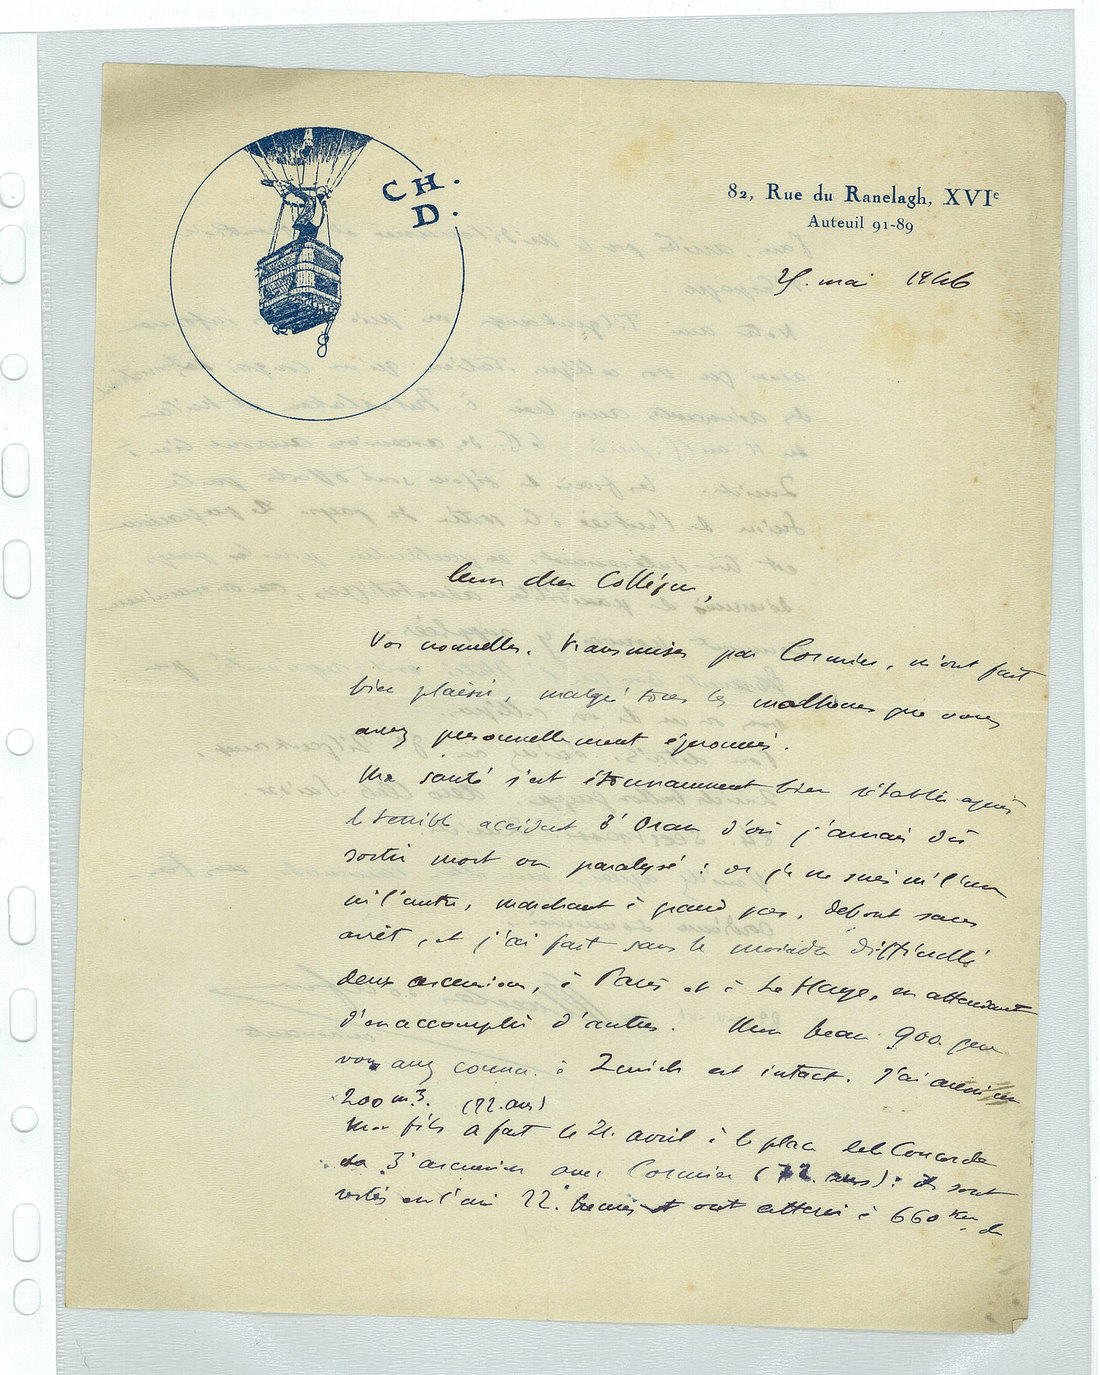 CH.
D.
82, Rue du Ranelagh, XVIe
Auteuil 91-89
mai 1946
Mon cher Collègue,
Vos nouvelles, transmises par Cormier, m'ont fait
bien plaisir, malgré tous les malheurs que vous
avez personnellement éprouvés.
Ma santé s'est étonnamment bien rétablie après
le terrible accident d'Oran d'où j'aurais dû
sortir mort ou paralysé : or je ne suis ni l'un
ni l'autre, marchant à grand pas, debout sans
arrêt, et j'ai fait sans la moindre difficulté
deux ascensions, à Paris et à La Haye, en attendant
d'en accomplir d'autres. Mon beau 900 que
vous avez connu à Zurich est intact. J'ai aussi un
200 m3. (72 ans)
Mon fils a fait le 21. avril à la place de la Concorde
sa 3e ascension avec Cormier (72 ans) : ils sont
restés en l'air 22 heures et ont atterri à 660 Km de